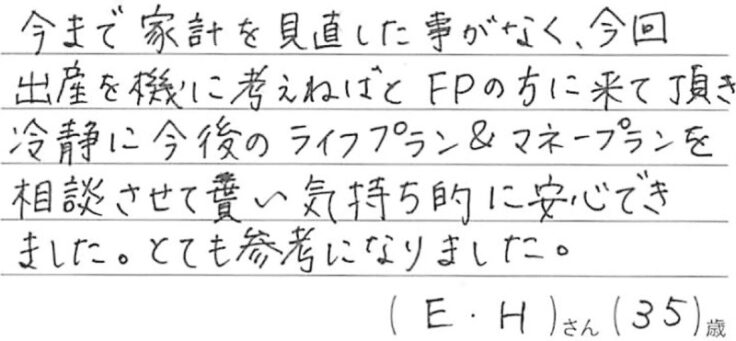 今まで家計を見直した事がなく、今回
出産を機に考えねばとFPの方に来て頂き
冷静に今後のライフプラン&マネープランを
相談させて貰い気持ち的に安心でき
ました。とても参考になりました。
(E・H)さん(35)歳